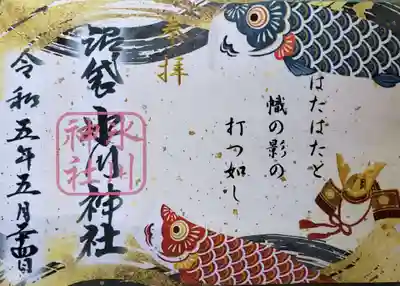 はたばたと
幟の影の
打つ如し
奉拝
沼袋氷川神社
氷川
神社
令和五年五月二十四日